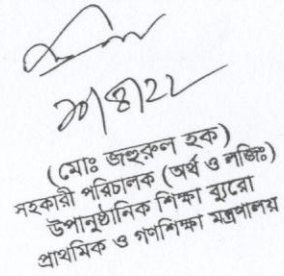 (মোঃ জহুরুল হক)
সহকারী পরিচালক (অর্থ ও লজিঃ)
উপানুষ্ঠানিক শিক্ষা ব্যুরো
প্রাথমিক ও গণশিক্ষা মন্ত্রণালয়